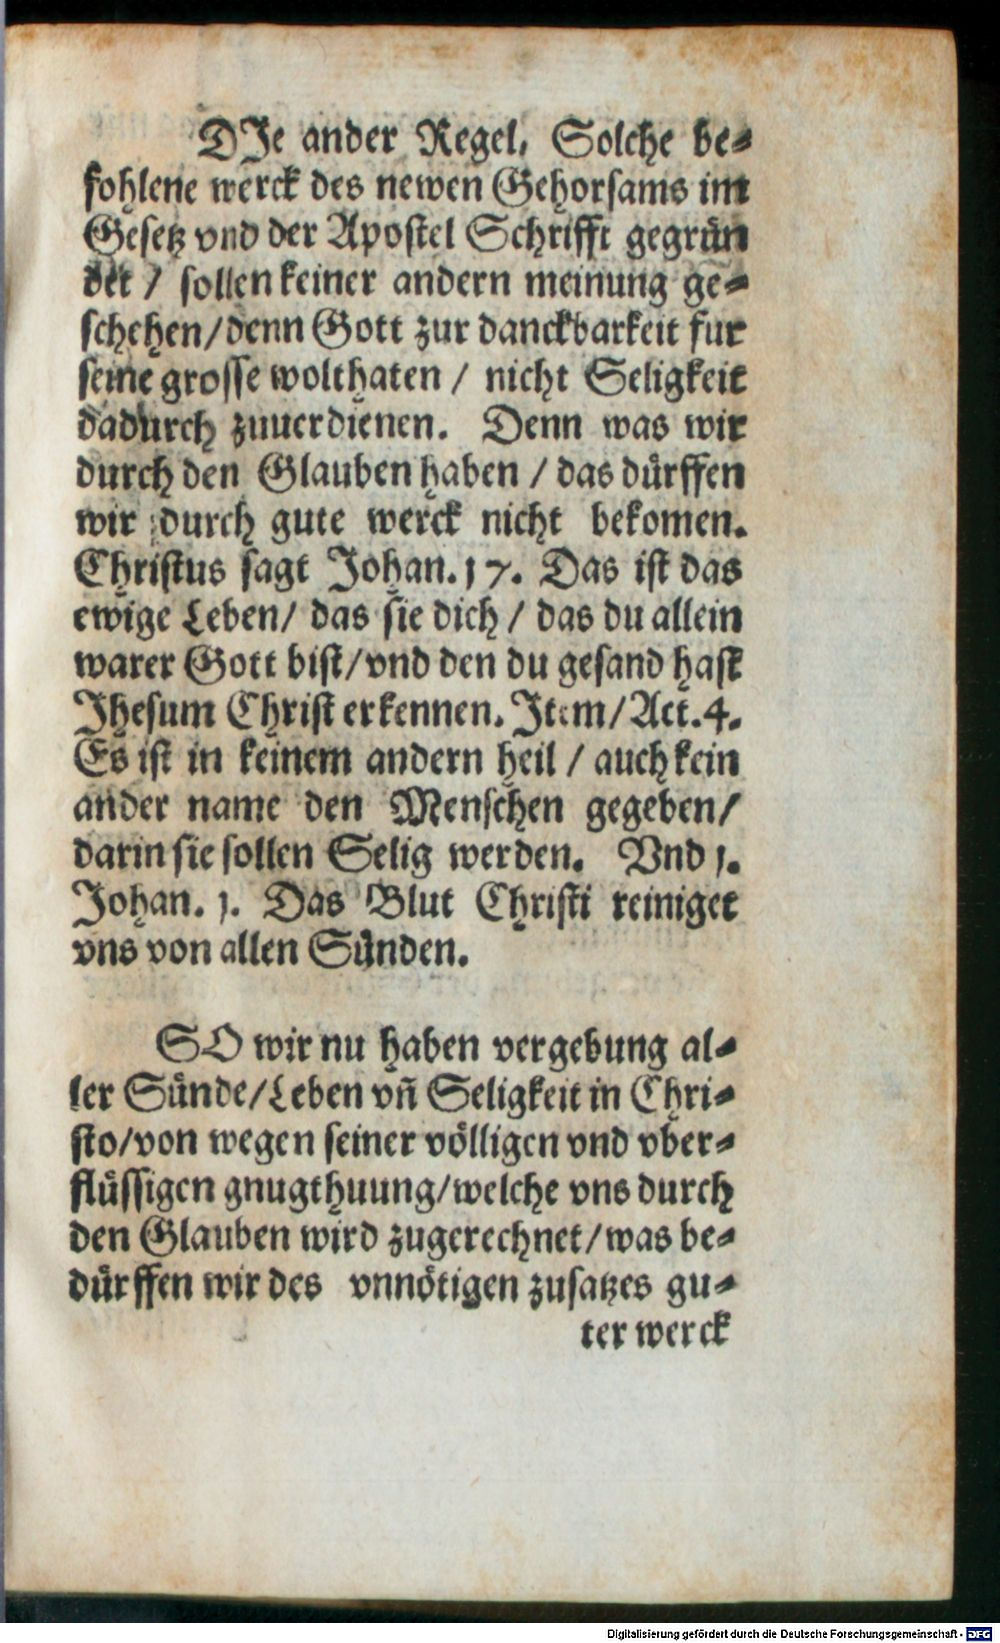 DJe ander Regel. Solche be-
fohlene werck des newen Gehorsams im
Gesetz vnd der Apostel Schrifft gegrün
det / sollen keiner andern meinung ge-
schehen/denn Gott zur danckbarkeit fur
seine grosse wolthaten / nicht Seligkeit
dadurch zuuerdienen. Denn was wir
durch den Glauben haben / das dürffen
wir durch gute werck nicht bekomen.
Christus sagt Johan. 17. Das ist das
ewige Leben/ das sie dich / das du allein
warer Gott bist/vnd den du gesand hast
Jhesum Christ erkennen. Item/Act. 4.
Es ist in keinem andern heil / auch kein
ander name den Menschen gegeben/
darin sie sollen Selig werden. Vnd 1.
Johan. 1. Das Blut Christi reiniget
vns von allen Sünden.
SO wir nu haben vergebung al-
ler Sünde/Leben vn̄ Seligkeit in Chri-
sto/von wegen seiner völligen vnd vber-
flüssigen gnugthuung/welche vns durch
den Glauben wird zugerechnet/was be-
dürffen wir des vnnötigen zusatzes gu-
ter werck
Digitalisierung gefördert durch die Deutsche Forschungsgemeinschaft - DFG